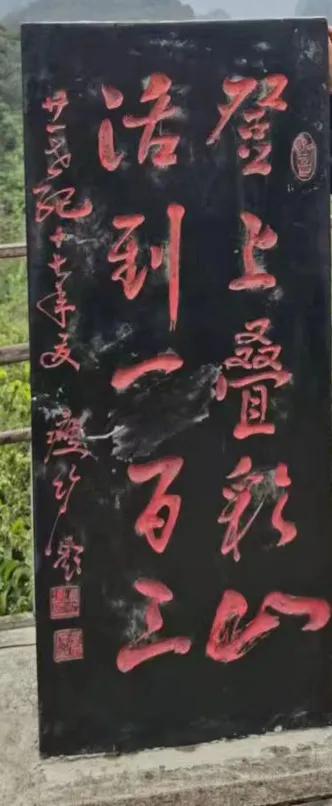 登上叠彩山
活到一百三
廿一世纪十七年夏